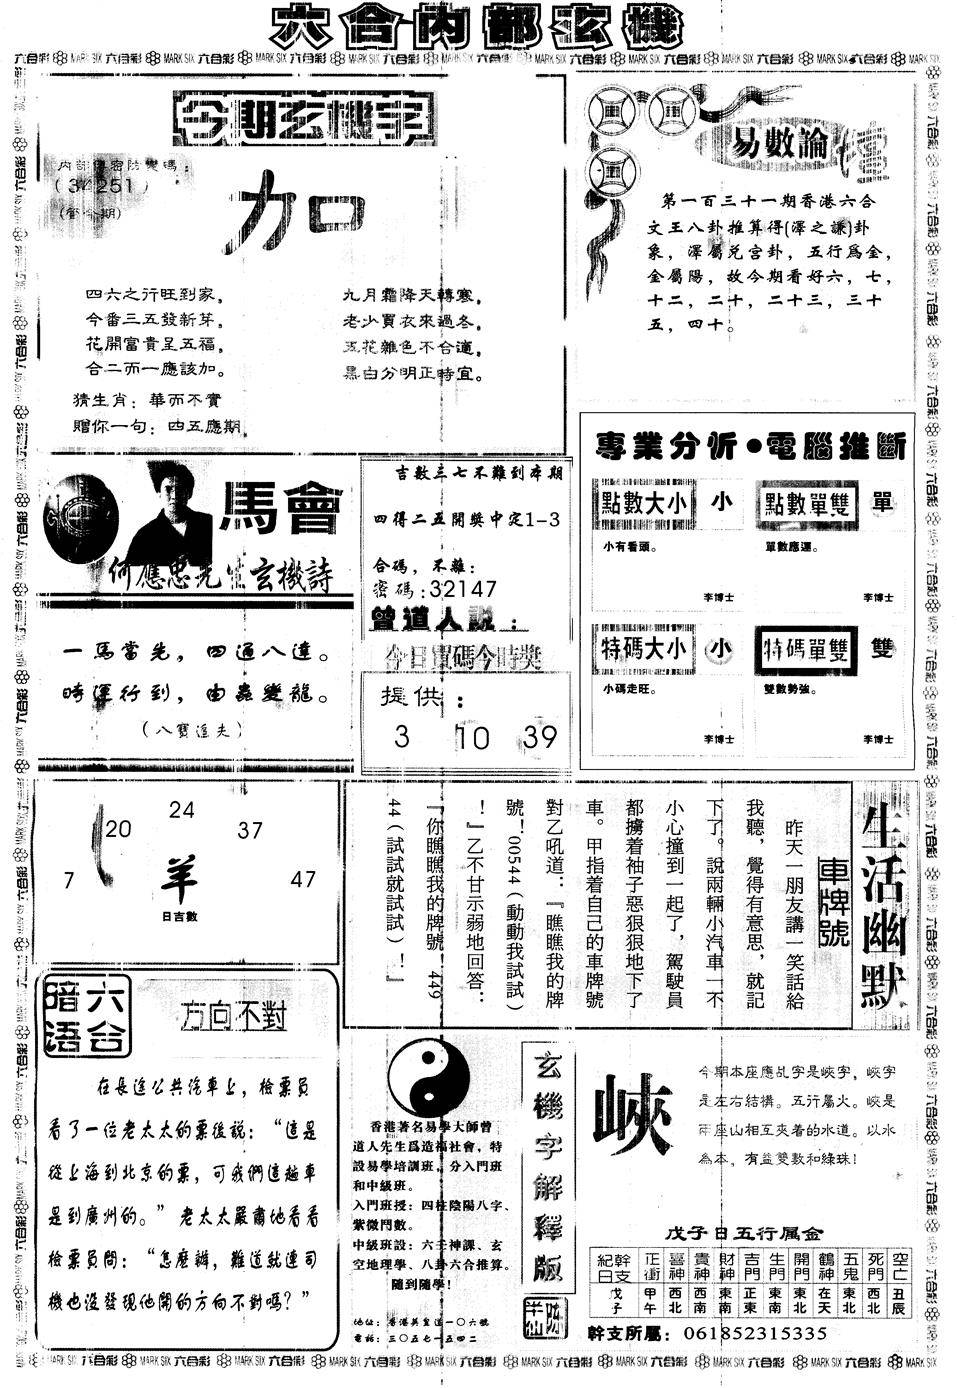 六合內部玄機
今期玄機字
加
四六之行旺到家，
今番三五發新芽。
花開富貴呈五福，
合二而一應該加。
九月霜降天轉寒，
老少買衣來過冬，
五花雜色不合適，
黑白分明正時宜。
猜生肖：華而不實
贈你一句：四五應期
易數論壇
第一百三十一期香港六合
文王八卦推算得(澤之謙)卦
象，澤屬兌宮卦，五行爲金，
金屬陽，故今期看好六，七，
十二，二十，二十三，三十
五，四十。
專業分析•電腦推斷
點數大小 小
小有看頭。
李博士
點數單雙 單
單數應運。
李博士
特碼大小 小
小碼走旺。
李博士
特碼單雙 雙
雙數勢強。
李博士
馬會
何應忠先生玄機詩
一馬當先，四通八達。
時運行到，由蟲變龍。
吉數三七不難到本期
四得二五開獎中定1-3
合碼，不離：
密碼：32147
曾道人説：
今日寶碼今時獎
提供：
3 10 39
7 20 24 37 47
羊
日吉數
生活幽默
車牌號
昨天一朋友講一笑話給
我聽，覺得有意思，就記
下了。說兩輛小汽車一不
小心撞到一起了，駕駛員
都擄着袖子惡狠狠地下了
車。甲指着自己的車牌號
對乙吼道：『瞧瞧我的牌
號！00544（動動我試試）
！』乙不甘示弱地回答：
『你瞧瞧我的牌號！449
44（試試就試試）！』
六合暗语
方向不對
在長途公共汽車上，檢票員
看了一位老太太的票後說：“這是
從上海到北京的票，可我們這趟車
是到廣州的。”老太太嚴肅地看着
檢票員問：“怎麼辦，難道就連司
機也沒發現他開的方向不對嗎？”
香港著名易學大師曾
道人先生爲造福社會，特
設易學培訓班，分入門班
和中級班。
入門班授：四柱陰陽八字、
紫微鬥數。
中級班設：六壬神課、玄
空地理學、八卦六合推算。
隨到隨學！
地址：香港英皇道一0六號
電話：三0五七一五四二
玄機字解釋版
峽
今期本座應乩字是峽字，峽字
是左右結構。五行屬火。峽是
兩座山相互夾着的水道。以水
為本，有益雙數和綠珠！
戊子日五行属金
紀日幹支 正衝 喜神 貴神 財神 吉門 生門 開門 鶴神 五鬼 死門 空亡
戊子 甲午 西北 西南 東南 正東 東南 東北 在天 東北 西北 丑辰
幹支所屬：061852315335